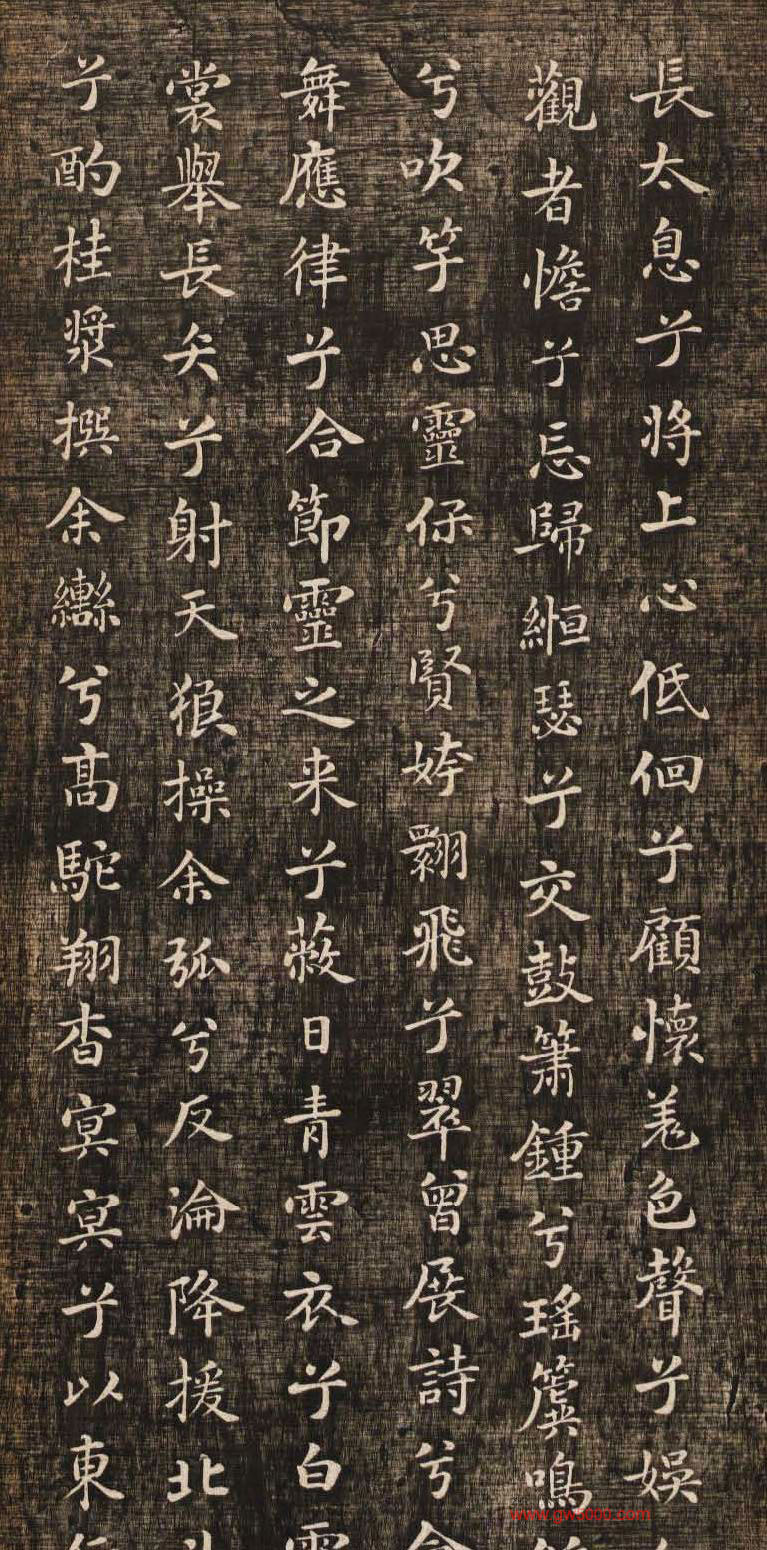 長太息兮將上心低佪兮顧懷羌色聲兮娛
觀者憺兮忘歸緪瑟兮交鼓簫鍾兮瑤簴鳴
兮吹竽思靈保兮賢姱翾飛兮翠曾展詩兮
舞應律兮合節靈之来兮蔽日青雲衣兮白
裳舉長矢兮射天狼操余弧兮反淪降援北
兮酌桂漿撰余轡兮高駝翔杳冥冥兮以東
www.gw5000.com